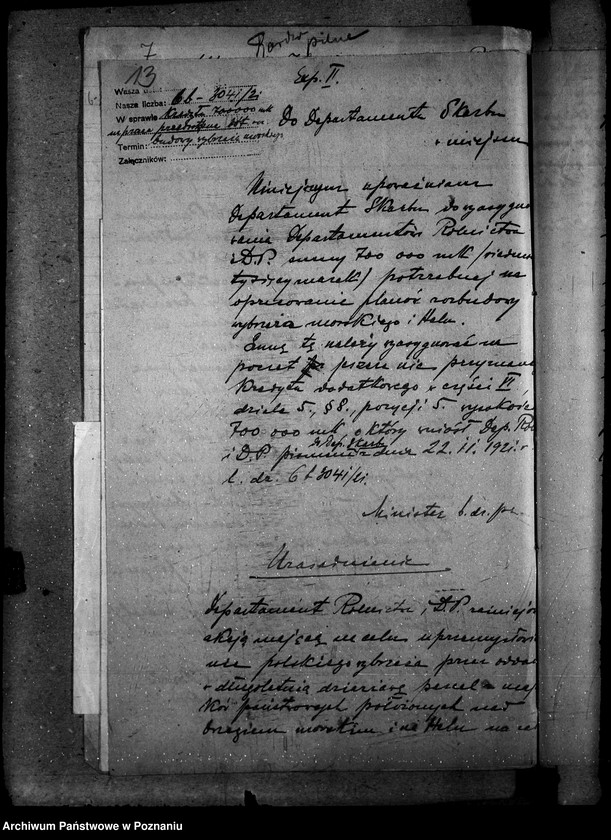 Bardzo pilne
13
Exp. II.
Wasza
Nasza liczba: 6b – 3041/21
W sprawie kredytu 700000 mk
na prace
budowy wybrzeża morskiego
Termin:
Załączników:
Do Departamentu Skarbu
w miejscu
Niniejszym upoważniam
Departament Skarbu do wyasygno
wania Departamentowi Rolnictwa
i D.P. sumy 700 000 mk (siedmset
tysięcy marek) potrzebnej na
opracowanie planów rozbudowy
wybrzeża morskiego i Helu.
Sumę tę należy wyasygnować na
poczet przeze mnie przyznane
kredytu dodatkowego w części VI,
dziale 5., § 8., pozycji 5. wysokości
700 000 mk o który wniósł Dep. Rol
i D.P. pismem do Dep. Skarbu z dnia 22. 11. 1921. r
l. dz. 6b 3041/21.
Minister b. dz. pr.
Uzasadnienie
Departament Rolnictwa i D.P.
akcję mającą na celu uprzemysłowie
nie polskiego wybrzeża przez odda
w długoletnią dzierżawę parcel z mają
ków państwowych położonych nad
brzegiem morskim i na Helu na
Archiwum Państwowe w Poznaniu